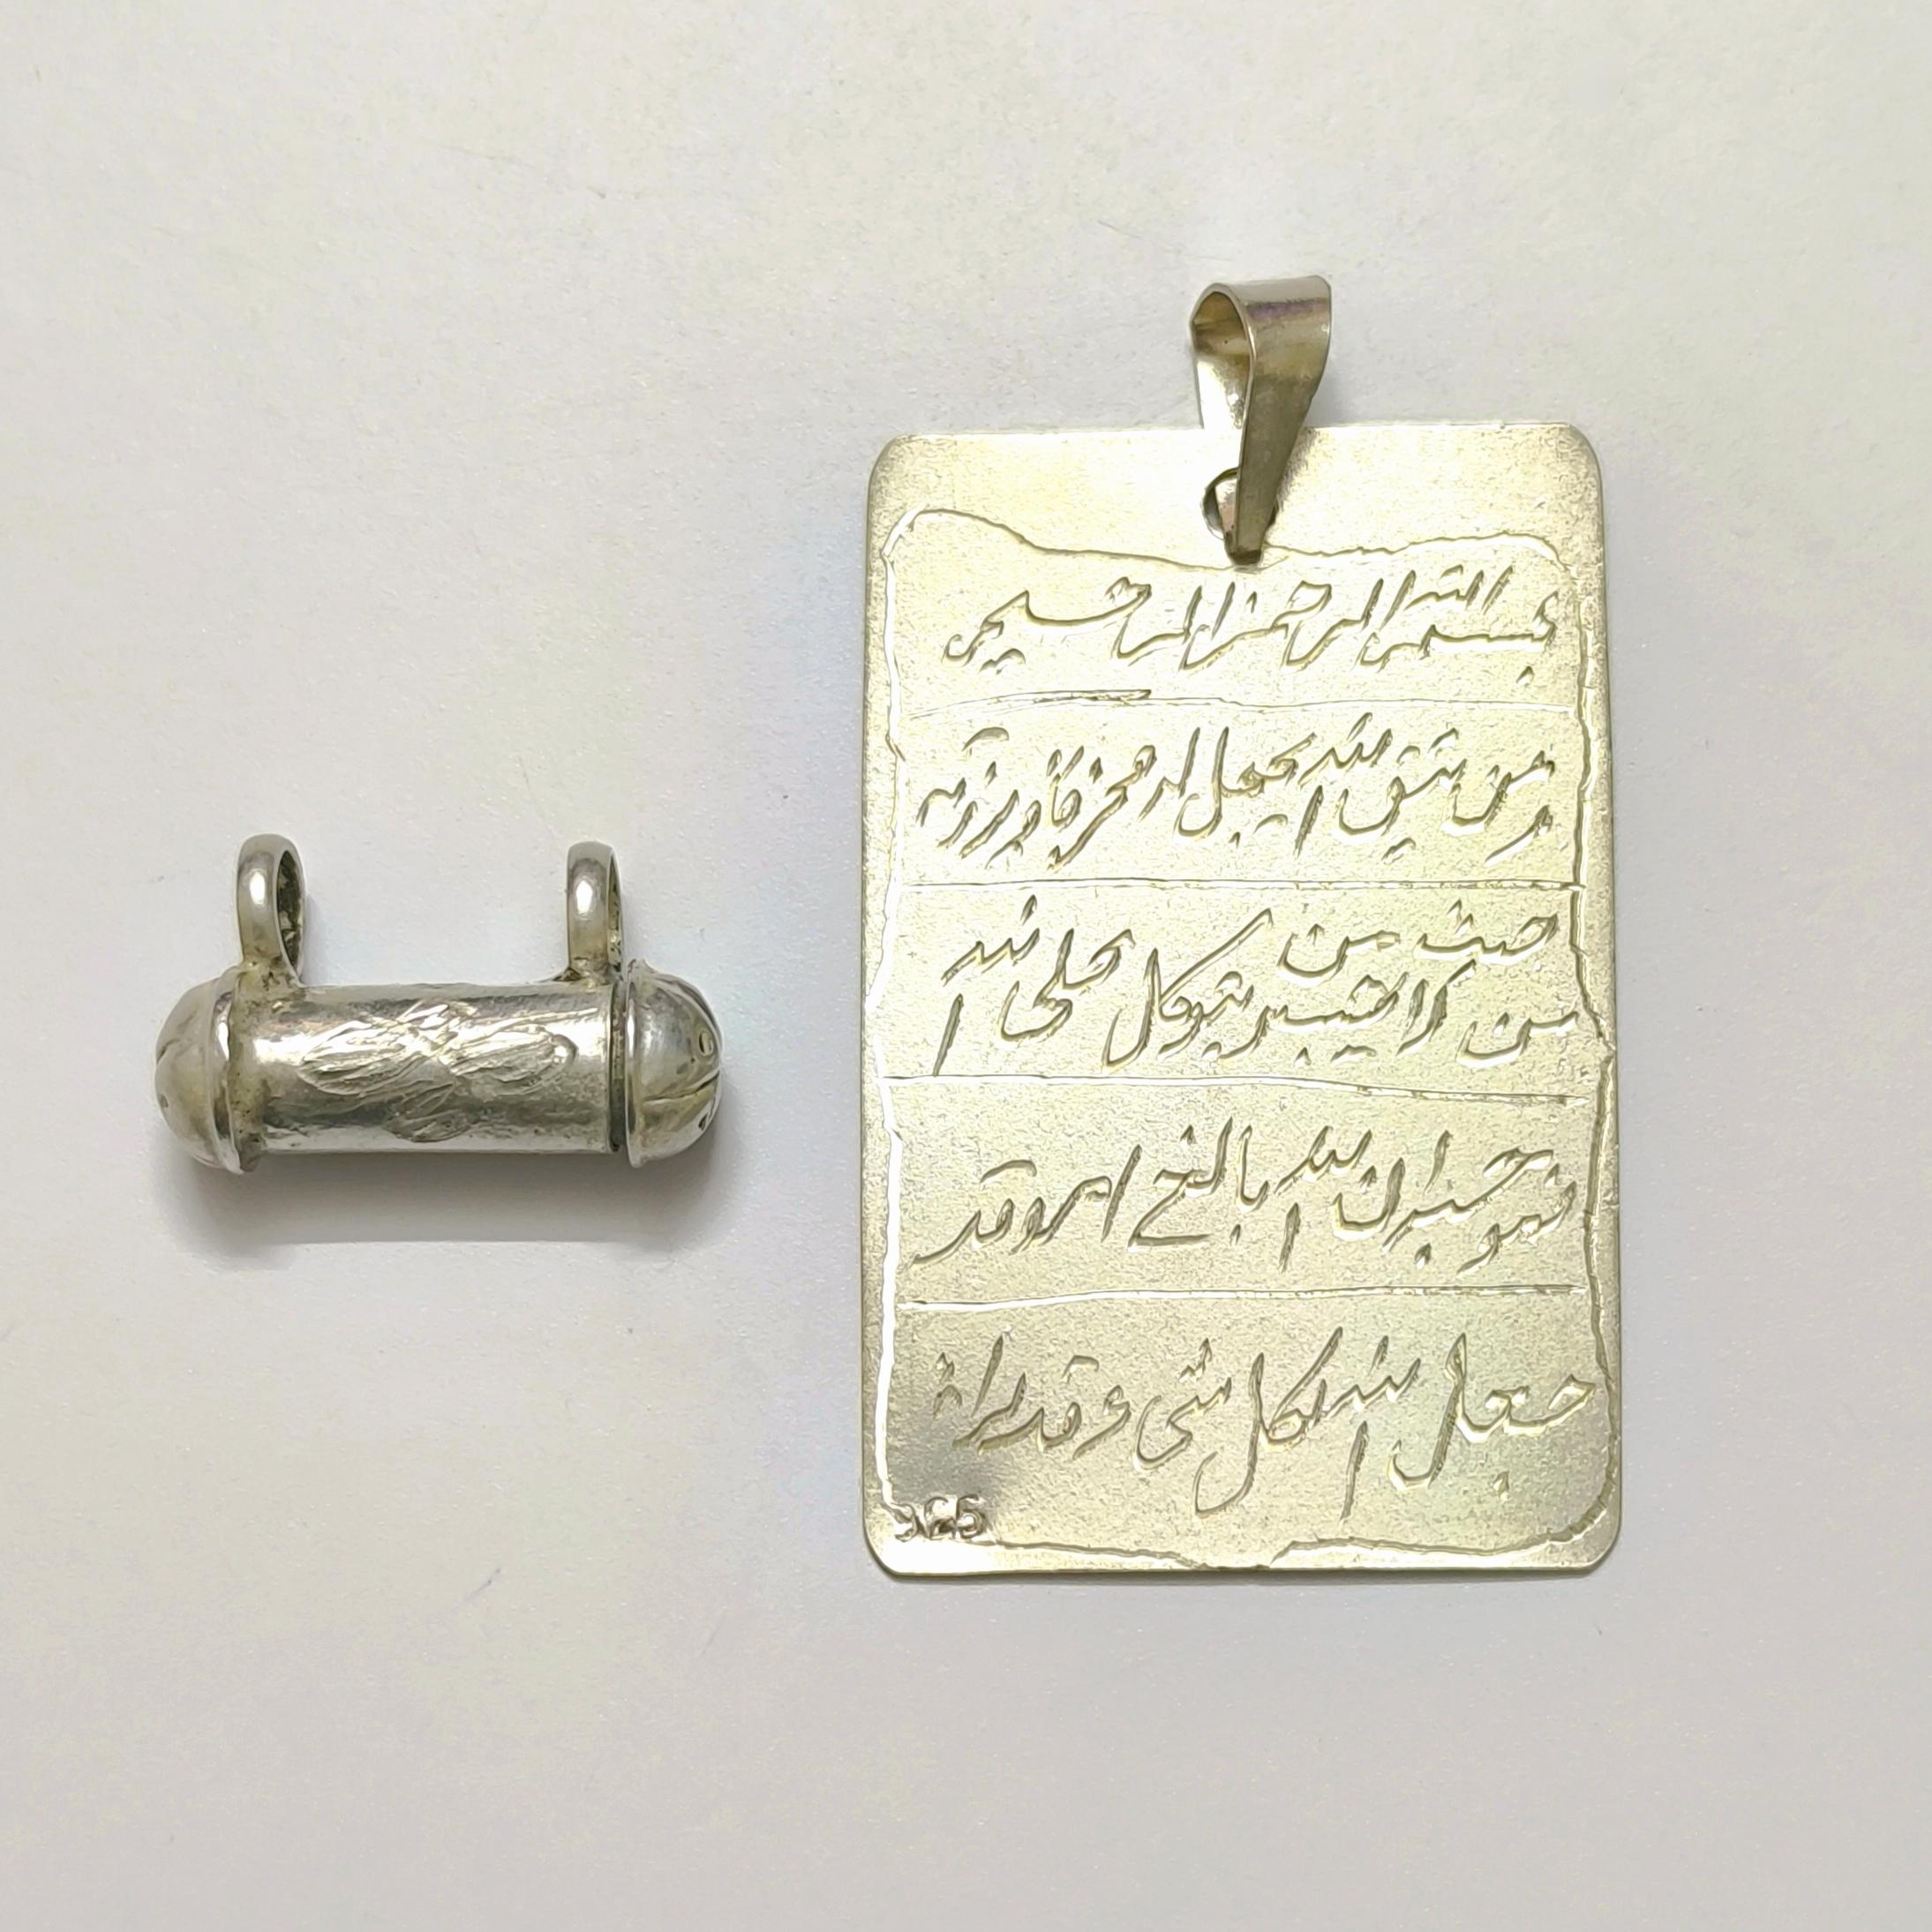 بسم الله الرحمن الرحیم
ومن یتق الله یجعل له مخرجا ویرزقه
من حیث لا یحتسب ومن یتوکل علی الله
فهو حسبه ان الله بالغ امره قد
جعل الله لکل شیء قدرا
925